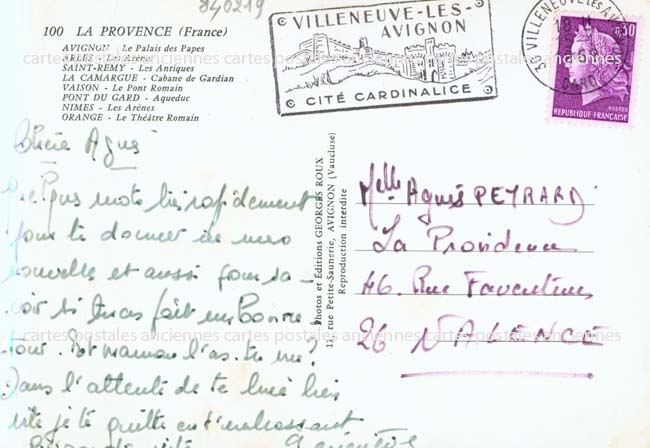 840219
100 LA PROVENCE (France)
AVIGNON - Le Palais des Papes
ARLES - Les Arènes
SAINT-REMY - Les Antiques
LA CAMARGUE - Cabane de Gardian
VAISON - Le Pont Romain
PONT DU GARD - Aqueduc
NIMES - Les Arènes
ORANGE - Le Théâtre Romain
VILLENEUVE-LES-
AVIGNON
CITÉ CARDINALICE
30 VILLENEUVE LES AVIGNON
GARD
0,30
POSTES
REPUBLIQUE FRANÇAISE
Chère Agnès
Quelques mots très rapidement
pour te donner de mes
nouvelles et aussi pour sa-
voir si tu as fait un bonne
tour. Et maman l'as-tu vue?
Dans l'attente de te lire très
vite je te quitte en t'embrassant
Geneviève
Photos et Editions GEORGES ROUX
17, rue Petite-Saunerie, AVIGNON (Vaucluse)
Reproduction interdite
Melle Agnès PEYRARD
La Providence
46. Rue Faventines
26 VALENCE
cartes postales anciennes cartes postales anciennes cartes postales anciennes
cartes postales anciennes cartes postales anciennes cartes postales anciennes